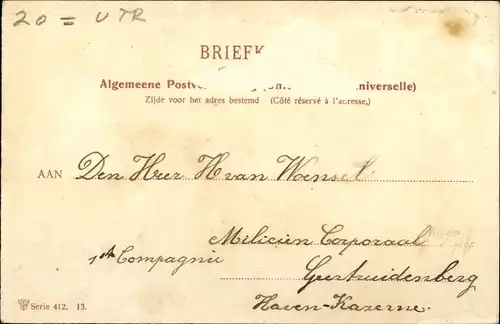 20 = UTR
BRIEFK
Algemeene Postve niverselle)
Zijde voor het adres bestemd (Côté réservé à l'adresse,)
AAN Den Heer H van Woensel
Milicien Corporaal
1ste Compagnie
Geertruidenberg
Haven-Kazerne.
Serie 412. 13.